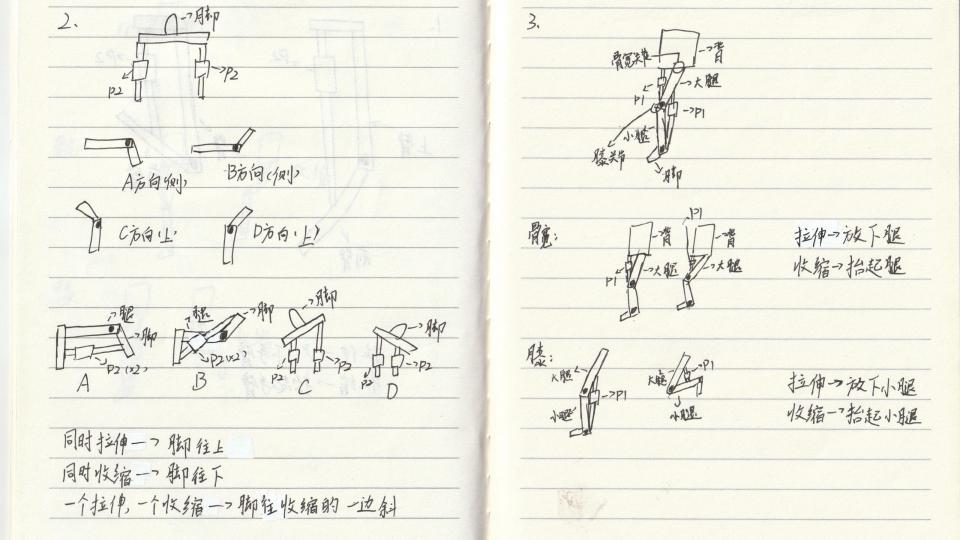 2.
脚
P2
P2
A方向(侧)
B方向(侧)
C方向(上)
D方向(上)
腿
脚
P2(x2)
A
腿
脚
P2(x2)
B
脚
P2
P2
C
脚
P2
P2
D
同时拉伸一→ 脚往上
同时收缩一→ 脚往下
一个拉伸,一个收缩一→脚往收缩的一边斜
3.
背
骨宽关节
大腿
P1
P1
小腿
膝关节
脚
骨宽:
背
P1
大腿
P1
背
大腿
拉伸→放下腿
收缩→抬起腿
膝:
大腿
P1
小腿
大腿
P1
小腿
拉伸→放下小腿
收缩→抬起小腿